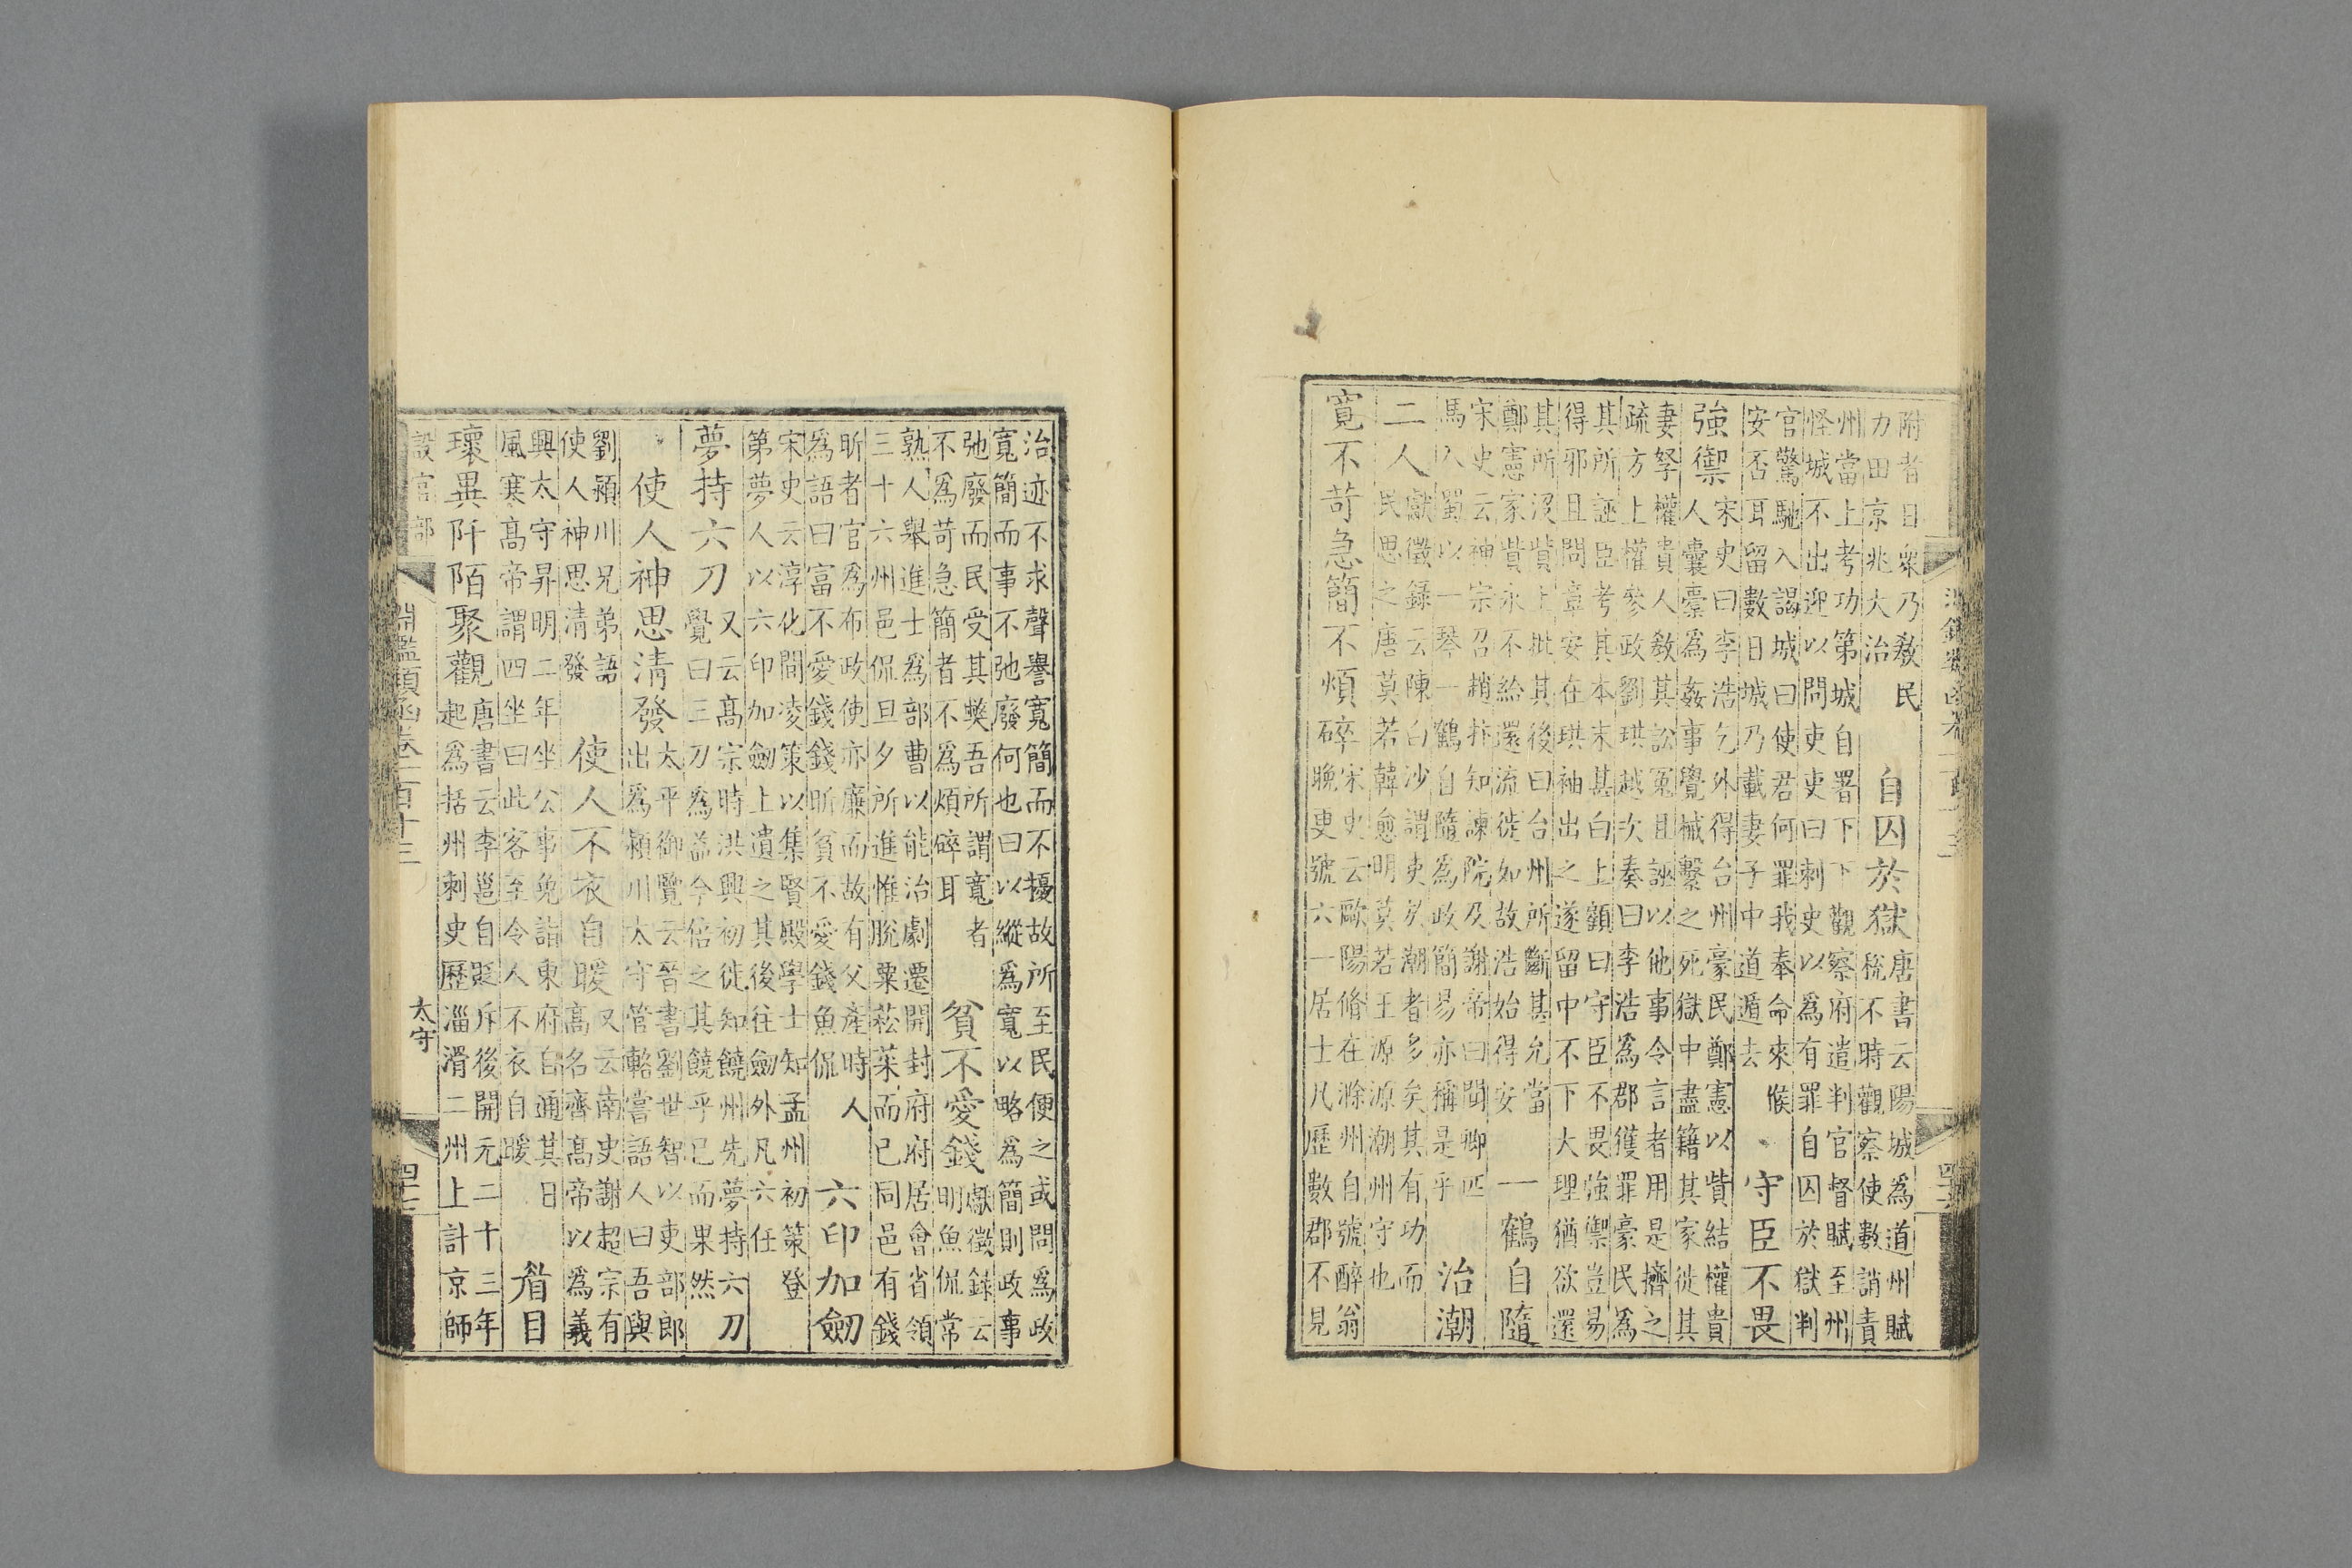 附者日衆乃敎民
力田京兆大治
自囚於獄
唐書云陽城爲道州賦
稅不時觀察使數誚責
州當上考功第城自署下下觀察府遣判官督賦至州
怪城不出迎以問吏吏曰刺史以爲有罪自囚於獄判
官驚馳入謁城曰使君何罪我奉命來候
安否耳留數日城乃載妻子中道遁去
守臣不畏
強禦
宋史曰李浩乞外得台州豪民鄭憲以貲結權貴
人囊橐爲姦事覺械繫之死獄中盡籍其家徙其
妻孥權貴人敎其訟冤且誣以他事令言者用是擠之
疏方上權參政劉珙越次奏曰李浩爲郡獲罪豪民爲
其所誣臣考其本末甚白上顧曰守臣不畏強禦豈易
得邪且問章安在珙袖出之遂留中不下大理猶欲還
其所沒貲上批其後曰台州所斷其允當
鄭憲家貲永不給還流徙如故浩始得安
一鶴自隨
宋史云神宗召趙抃知諫院及謝帝曰聞卿匹
馬入蜀以一琴一鶴自隨爲政簡易亦稱是乎
治潮
二人
獻徵錄云陳白沙謂吏於潮者多矣其有功而
民思之唐莫若韓愈明莫若王源源潮州守也
寬不苛急簡不煩碎
宋史云歐陽脩在滁州自號醉翁
晚更號六一居士凡歷數郡不見
治迹不求聲譽寬簡而不擾故所至民便之或問爲政
寬簡而事不弛廢何也曰以縱爲寬以略爲簡則政事
弛廢而民受其弊吾所謂寬者
不爲苛急簡者不爲煩碎耳
貧不愛錢
獻徵錄云
明魚侃常
熟人舉進士爲部曹以能治劇遷開封府府居會省領
三十六州邑侃旦夕所進惟脫粟菘菜而已同邑有錢
昕者官爲布政使亦廉而故有父產時人
爲語曰富不愛錢錢昕貧不愛錢魚侃
六印加劒
宋史云淳化間凌策以集賢殿學士知孟州初策登
第夢人以六印加劒上遺之其後往劒外凡六任
夢持六刀
又云髙宗時洪興初徙知饒州先夢持六刀
覺曰三刀爲益今倍之其饒乎已而果然
使人神思清發
太平御覽云晉書劉世智以吏部郎
出爲潁川太守管輅嘗語人曰吾與
劉潁川兄弟語
使人神思清發
使人不衣自暖
又云南史謝超宗有
高名齊髙帝以爲義
興太守昇明二年坐公事免詣東府自通其日
風寒髙帝謂四坐曰此客至令人不衣自暖
眉目
瓌異阡陌聚觀
唐書云李邕自貶斥後開元二十三年
起爲括州刺史歷淄滑二州上計京師
設官部
太守
淵鑑類函卷一百十三
四十七